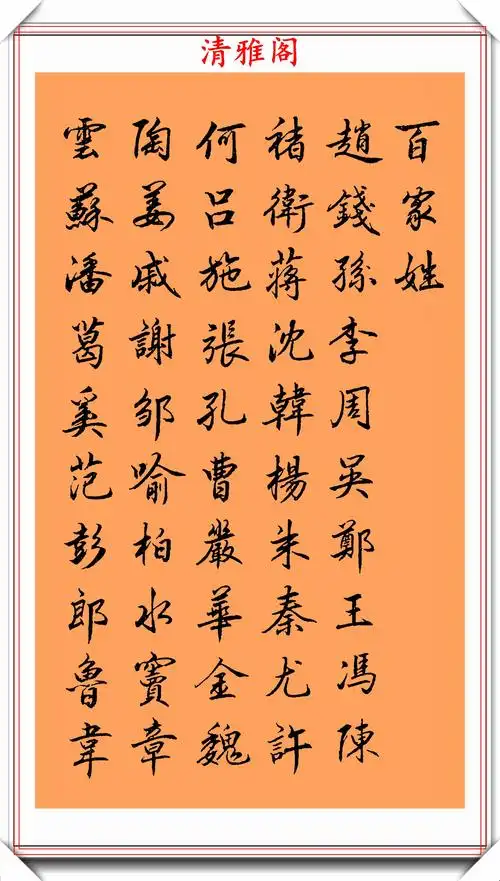 清雅阁
百家姓
趙錢孫李周吴鄭王馮陳
褚衛蔣沈韓楊朱秦尤許
何吕施張孔曹嚴華金魏
陶姜戚謝邹喻柏水竇章
雲蘇潘葛奚范彭郎魯韋